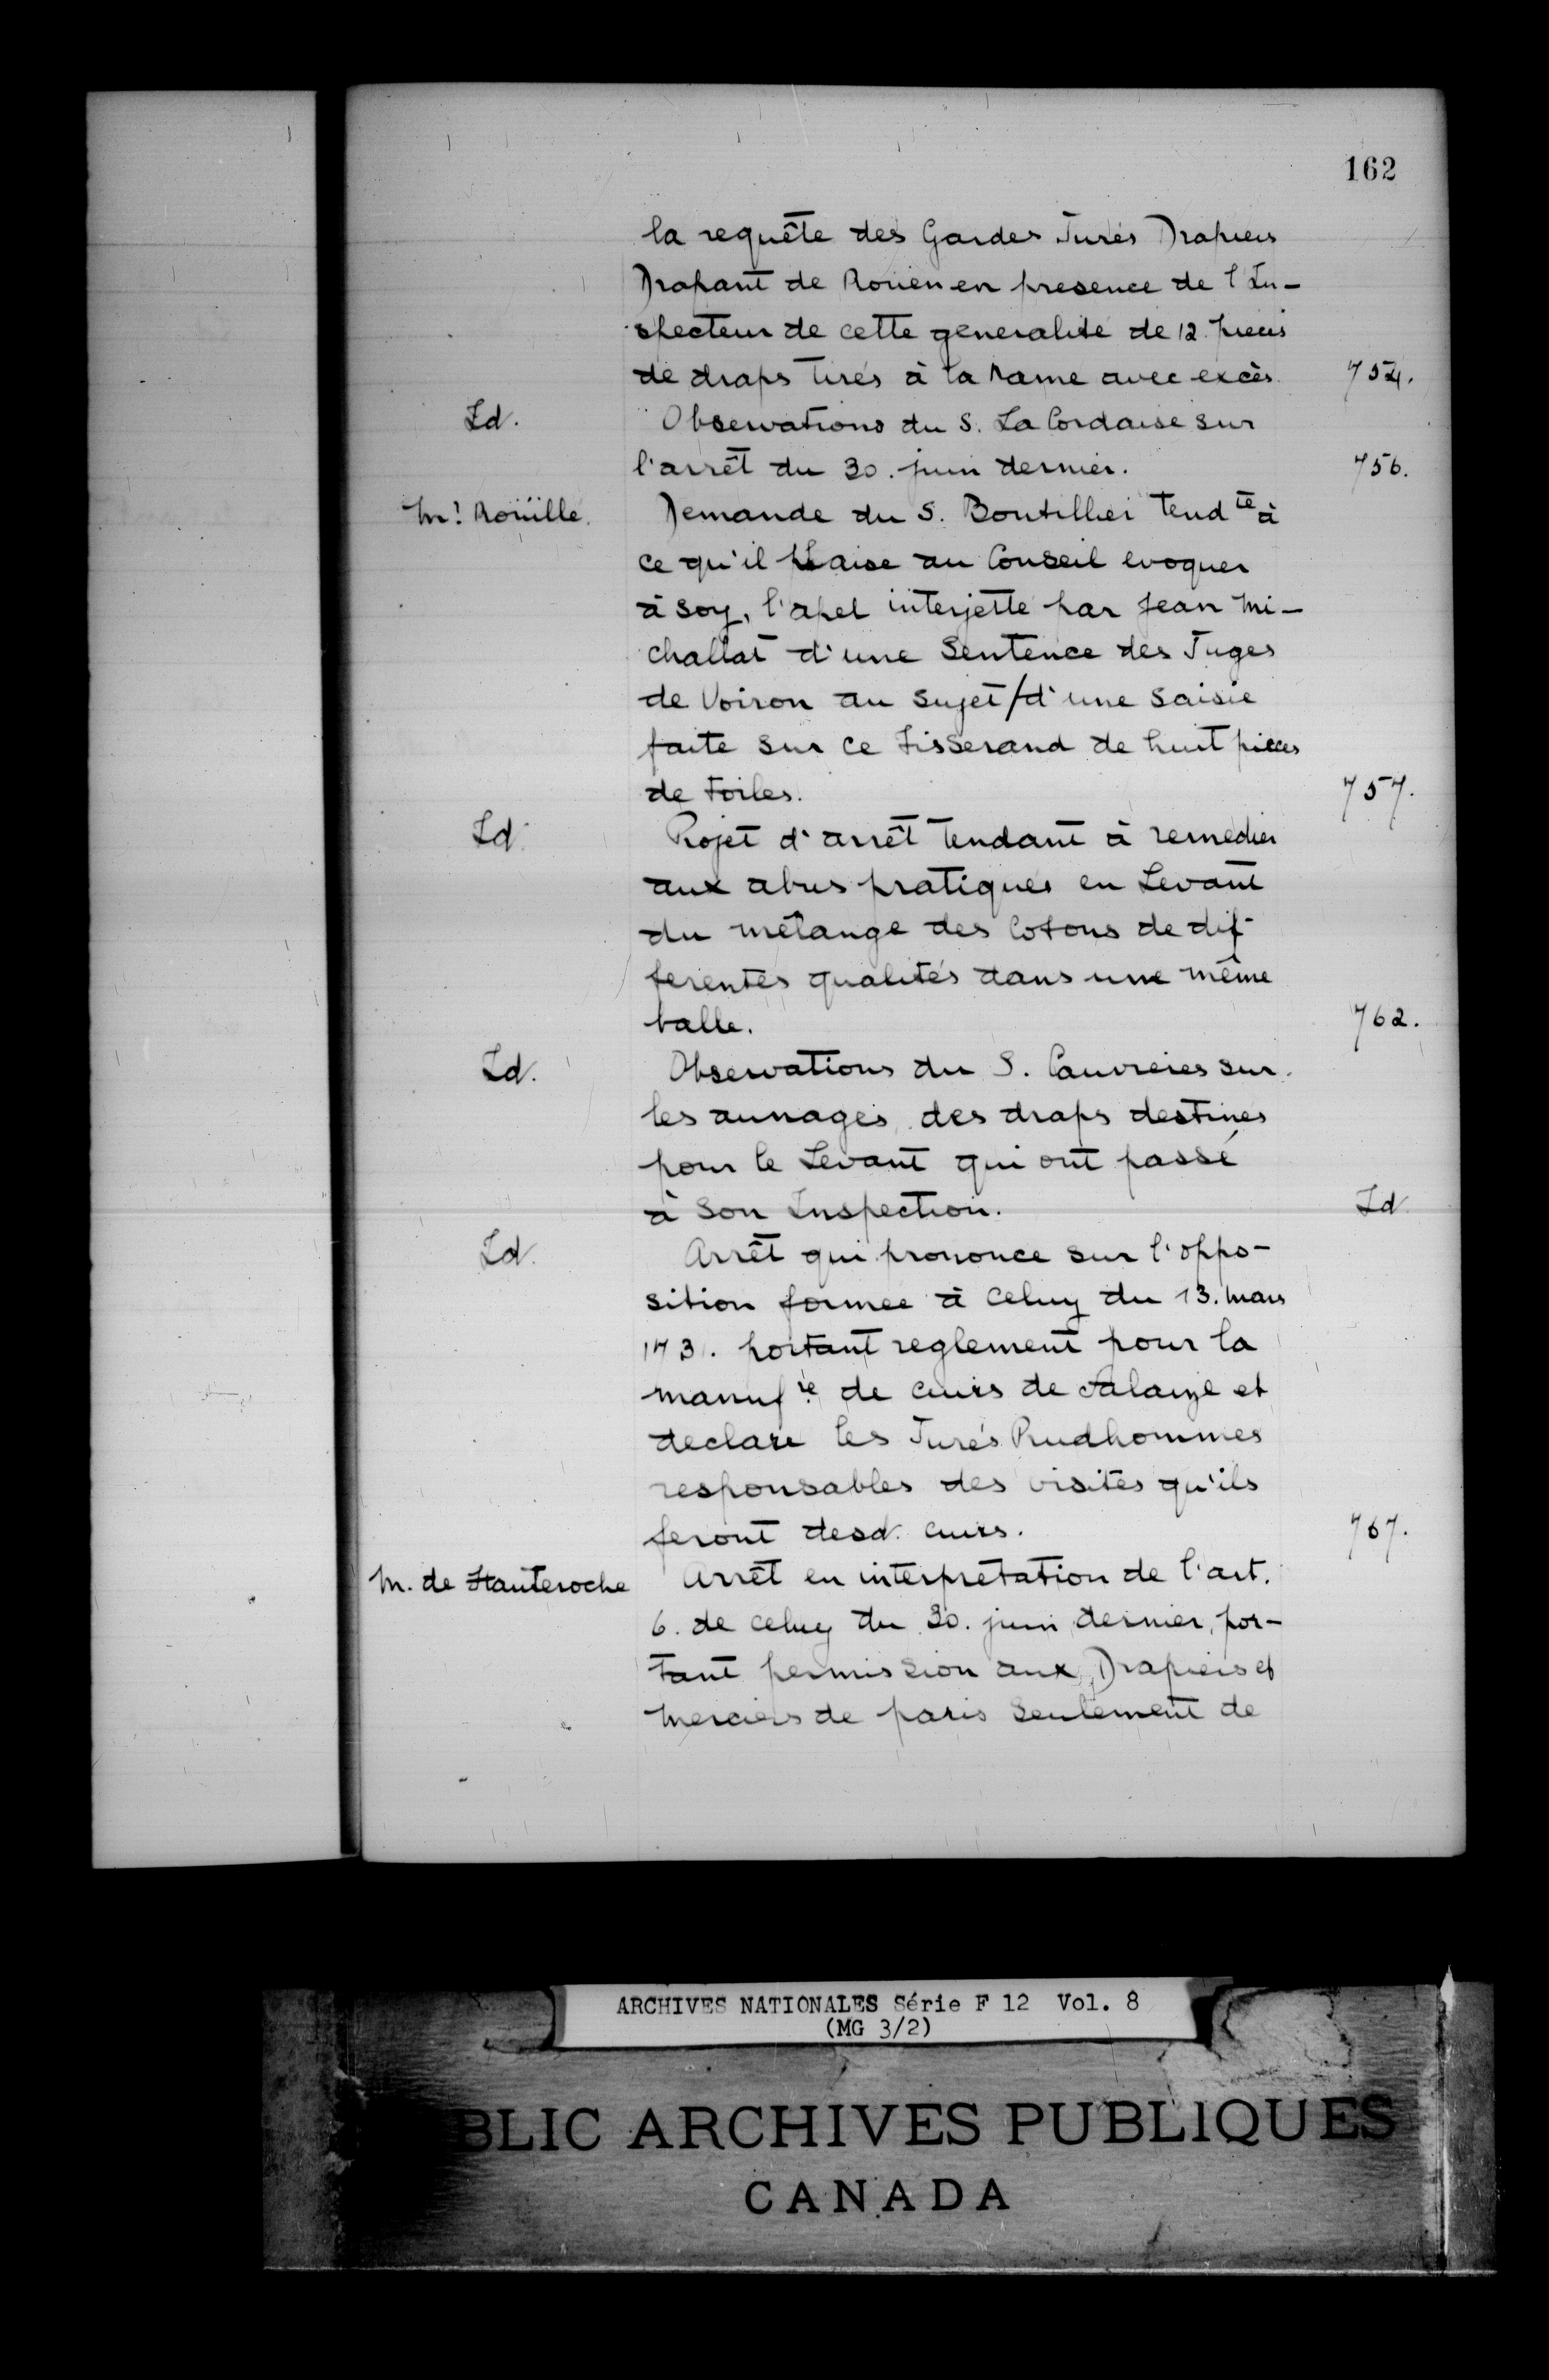 162
la requête des Gardes Jurés Drapiers
Drapant de Rouen en presence de l'In-
specteur de cette generalité de 12. pieces
de draps tirés à la Rame avec excès. 754.
Id. Observations du S. La Cordaise sur
l'arrêt du 30. juin dernier. 756.
Mr. Roüille. Demande du S. Boutillier tendte à
ce qu'il plaise au Conseil evoquer
à soy, l'apel interjetté par Jean Mi-
challat d'une Sentence des Juges
de Voiron au sujet/d'une saisie
faite sur ce tisserand de huit pieces
de toiles. 757.
Id. Projet d'arrêt tendant à remedier
aux abus pratiqués en Levant
du mélange des cotons de dif-
ferentes qualités dans une même
balle. 762.
Id. Observations du S. Cauvieres sur
les aunages des draps destinés
pour le Levant qui ont passé
à son Inspection. Id
Id. Arrêt qui prononce sur l'oppo-
sition formée à celuy du 13. mars
173. portant reglement pour la
manufre de cuirs de Falaize et
declare les Jurés Prudhommes
responsables des visites qu'ils
feront desd. cuirs. 767.
M. de Hauteroche Arrêt en interprétation de l'art.
6. de celuy du 30. juin dernier, por-
tant permission aux Drapiers et
Merciers de paris seulement de
ARCHIVES NATIONALES Série F 12 Vol. 8
(MG 3/2)
BLIC ARCHIVES PUBLIQUES
CANADA